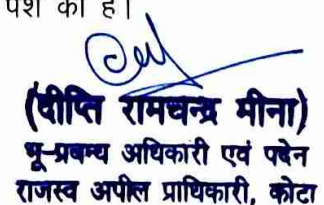 पेश की है।
(दीप्ति रामचन्द्र मीना)
भू-प्रबन्ध अधिकारी एवं पदेन
राजस्व अपील प्राधिकारी, कोटा